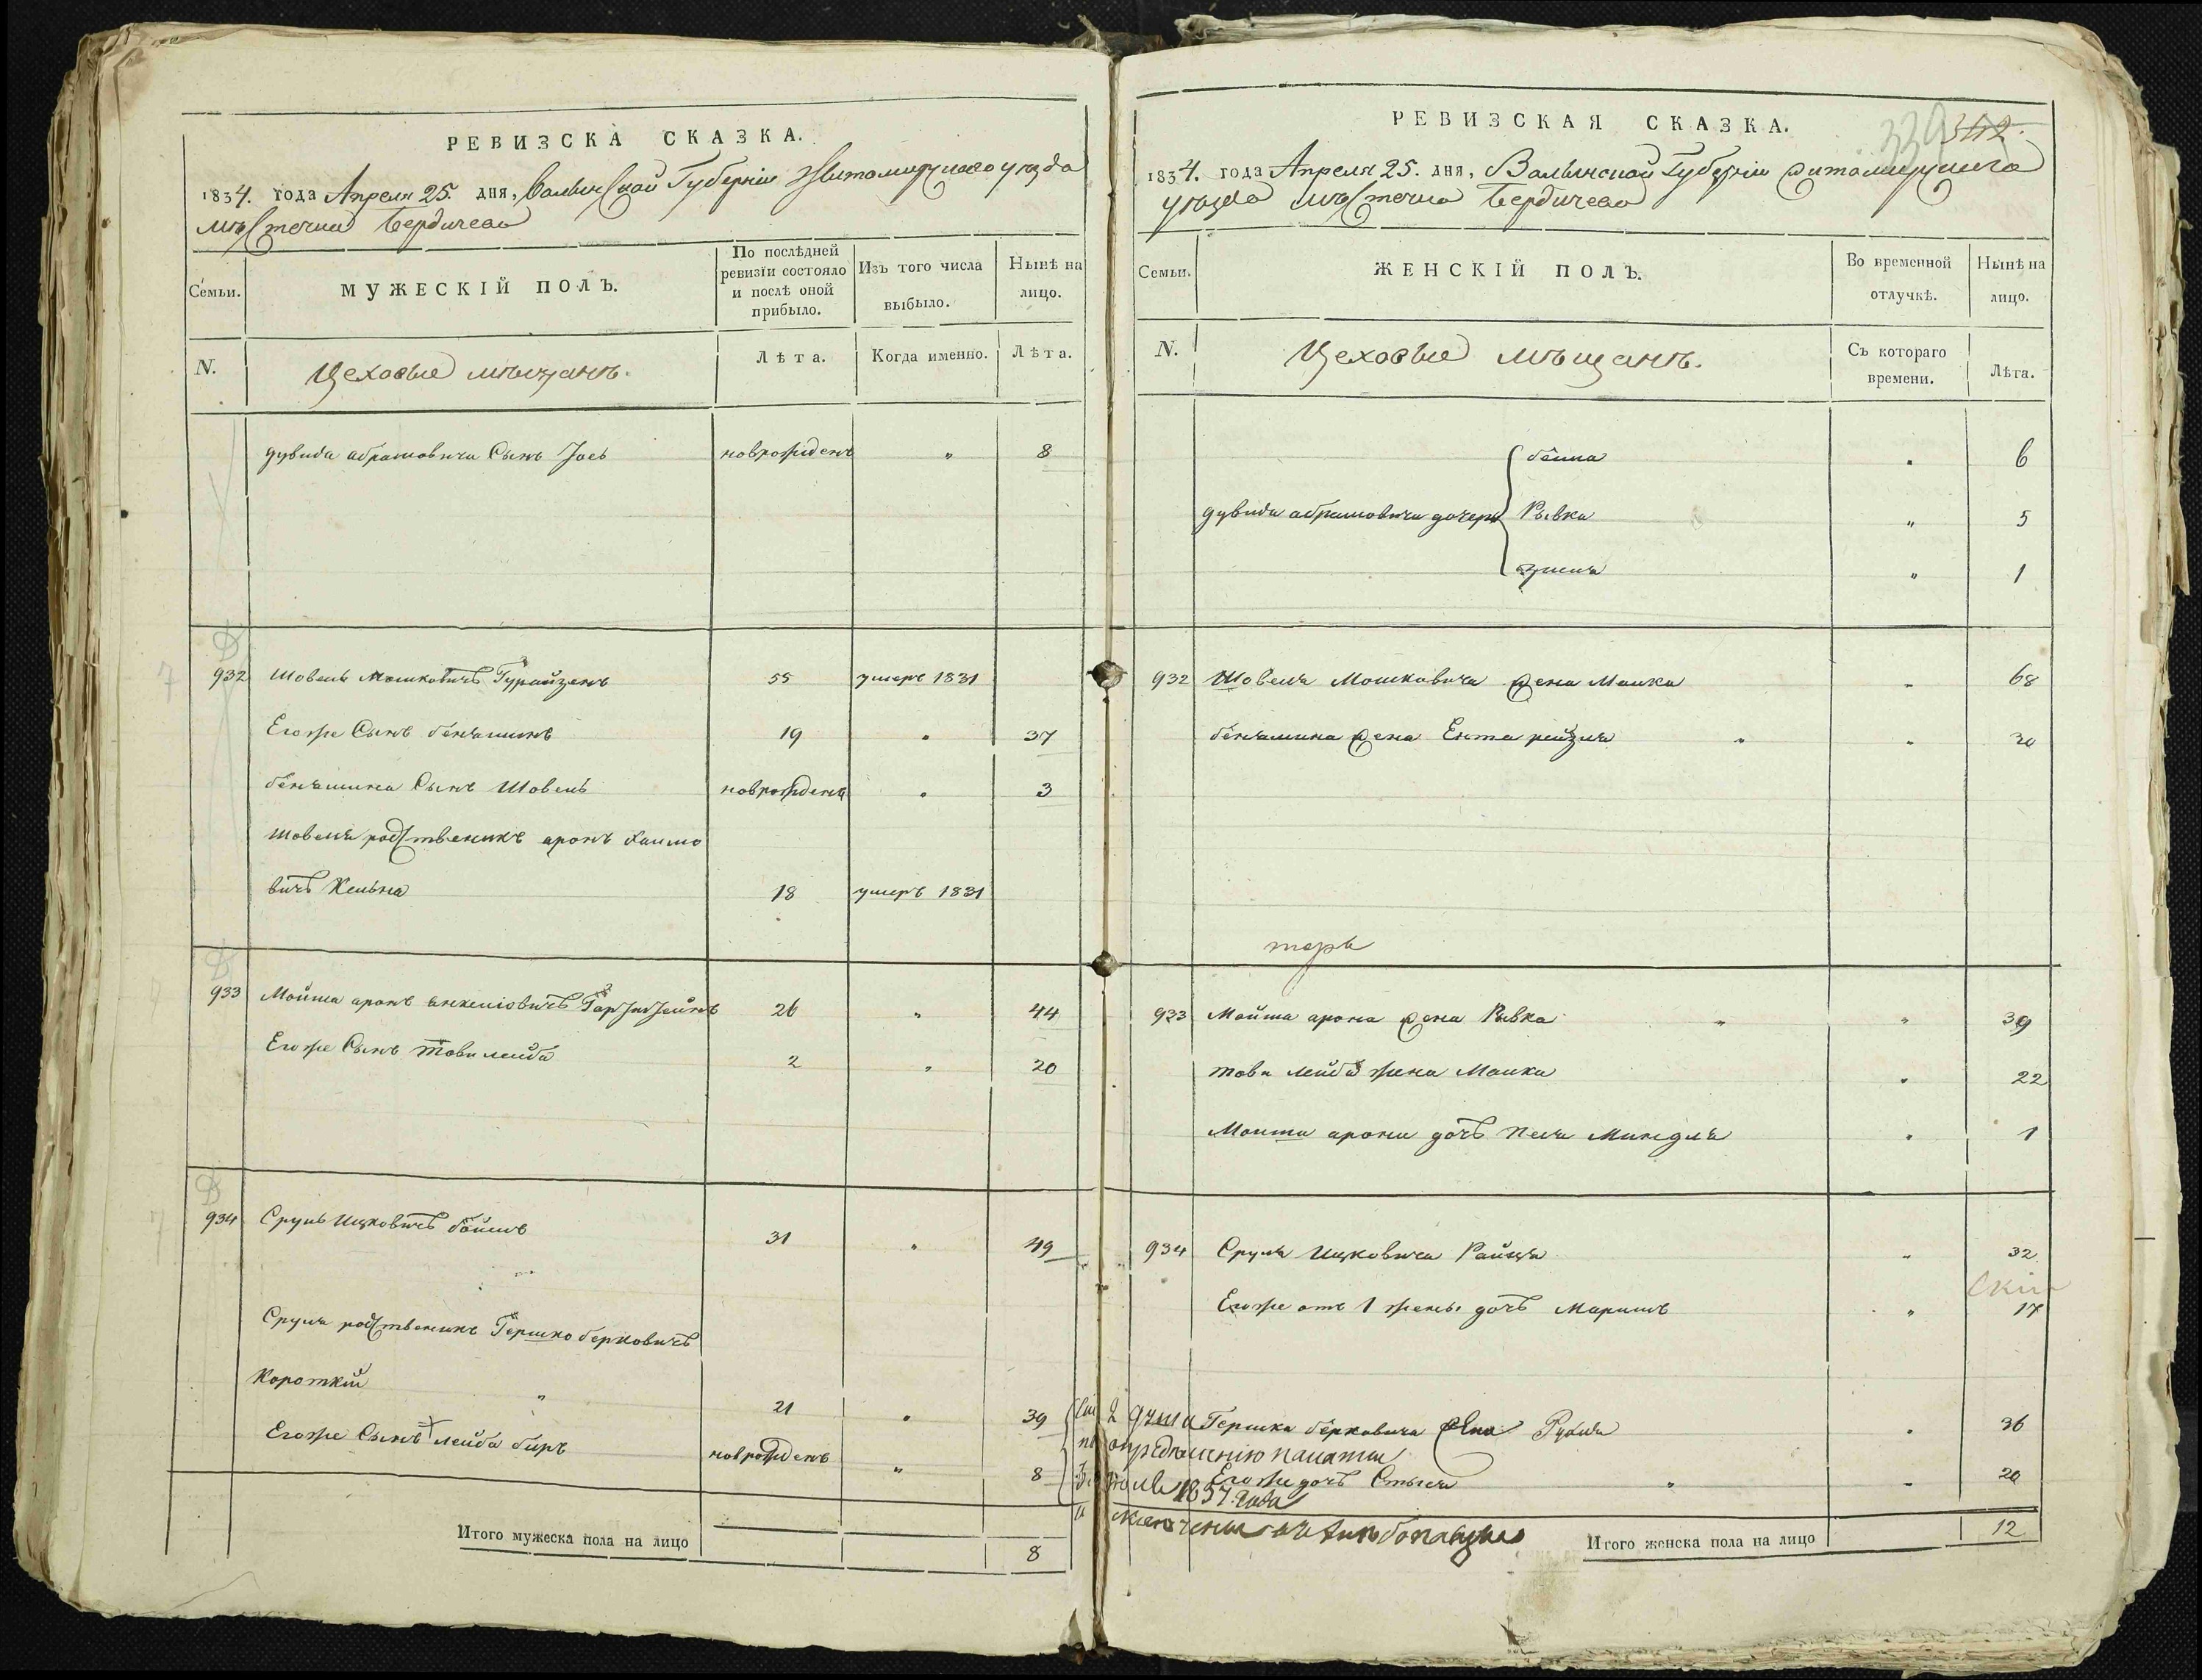 РЕВИЗСКА СКАЗКА.
1834. года Апреля 25. дня, Волынской Губернии Житомирскаго уезда
местечка Бердичева
Семьи.
МУЖЕСКІЙ ПОЛЪ.
По послѣдней ревизіи состояло и послѣ оной прибыло.
Изъ того числа выбыло.
Нынѣ на лицо.
N.
Цеховые мещанъ.
Лѣта.
Когда именно.
Лѣта.
дувида абрамовича Сынъ Иось новорожденъ " 8
932 Шовель Мошковичъ 55 умеръ 1831
Егоже Сынъ бенъяминъ 19 " 37
бенъямина Сынъ Шовель новорожденъ " 3
Шовеля родственникъ аронъ Хаимо
вичъ 18 умеръ 1831
933 Мойша аронъ 26 " 44
Егоже Сынъ Тови лейба 2 " 20
934 Сруль Ицковичъ 31 " 49
Сруля родственикъ Гершко берковичъ
Короткій " 21 " 39
Егоже Сынъ лейба беръ новорожденъ " 8
Итого мужеска пола на лицо 8
РЕВИЗСКАЯ СКАЗКА.
339 342.
1834. года Апреля 25. дня, Волынской Губернии Житомирскаго
уезда местечка Бердичева
Семьи.
ЖЕНСКІЙ ПОЛЪ.
Во временной отлучкѣ.
Нынѣ на лицо.
N.
Цеховые мещанъ.
Съ котораго времени.
Лѣта.
бейла " 6
дувида абрамовича дочери Рывка " 5
" 1
932 Шовеля Мошковича жена Малка " 68
бенъямина жена Ента рейзля " " 30
933 Мойша арона жена Рывка " " 39
тови лейба жена Малка " 22
Мойша арона дочь Песя Миндля " 1
934 Сруля Ицковича Райця " 32
Егоже отъ 1 жены дочь " 17
Сіи 2 души Гершка берковича жена Рухля " 36
по определению палаты
Егоже дочь " " 20
1857. года
Итого женска пола на лицо 12